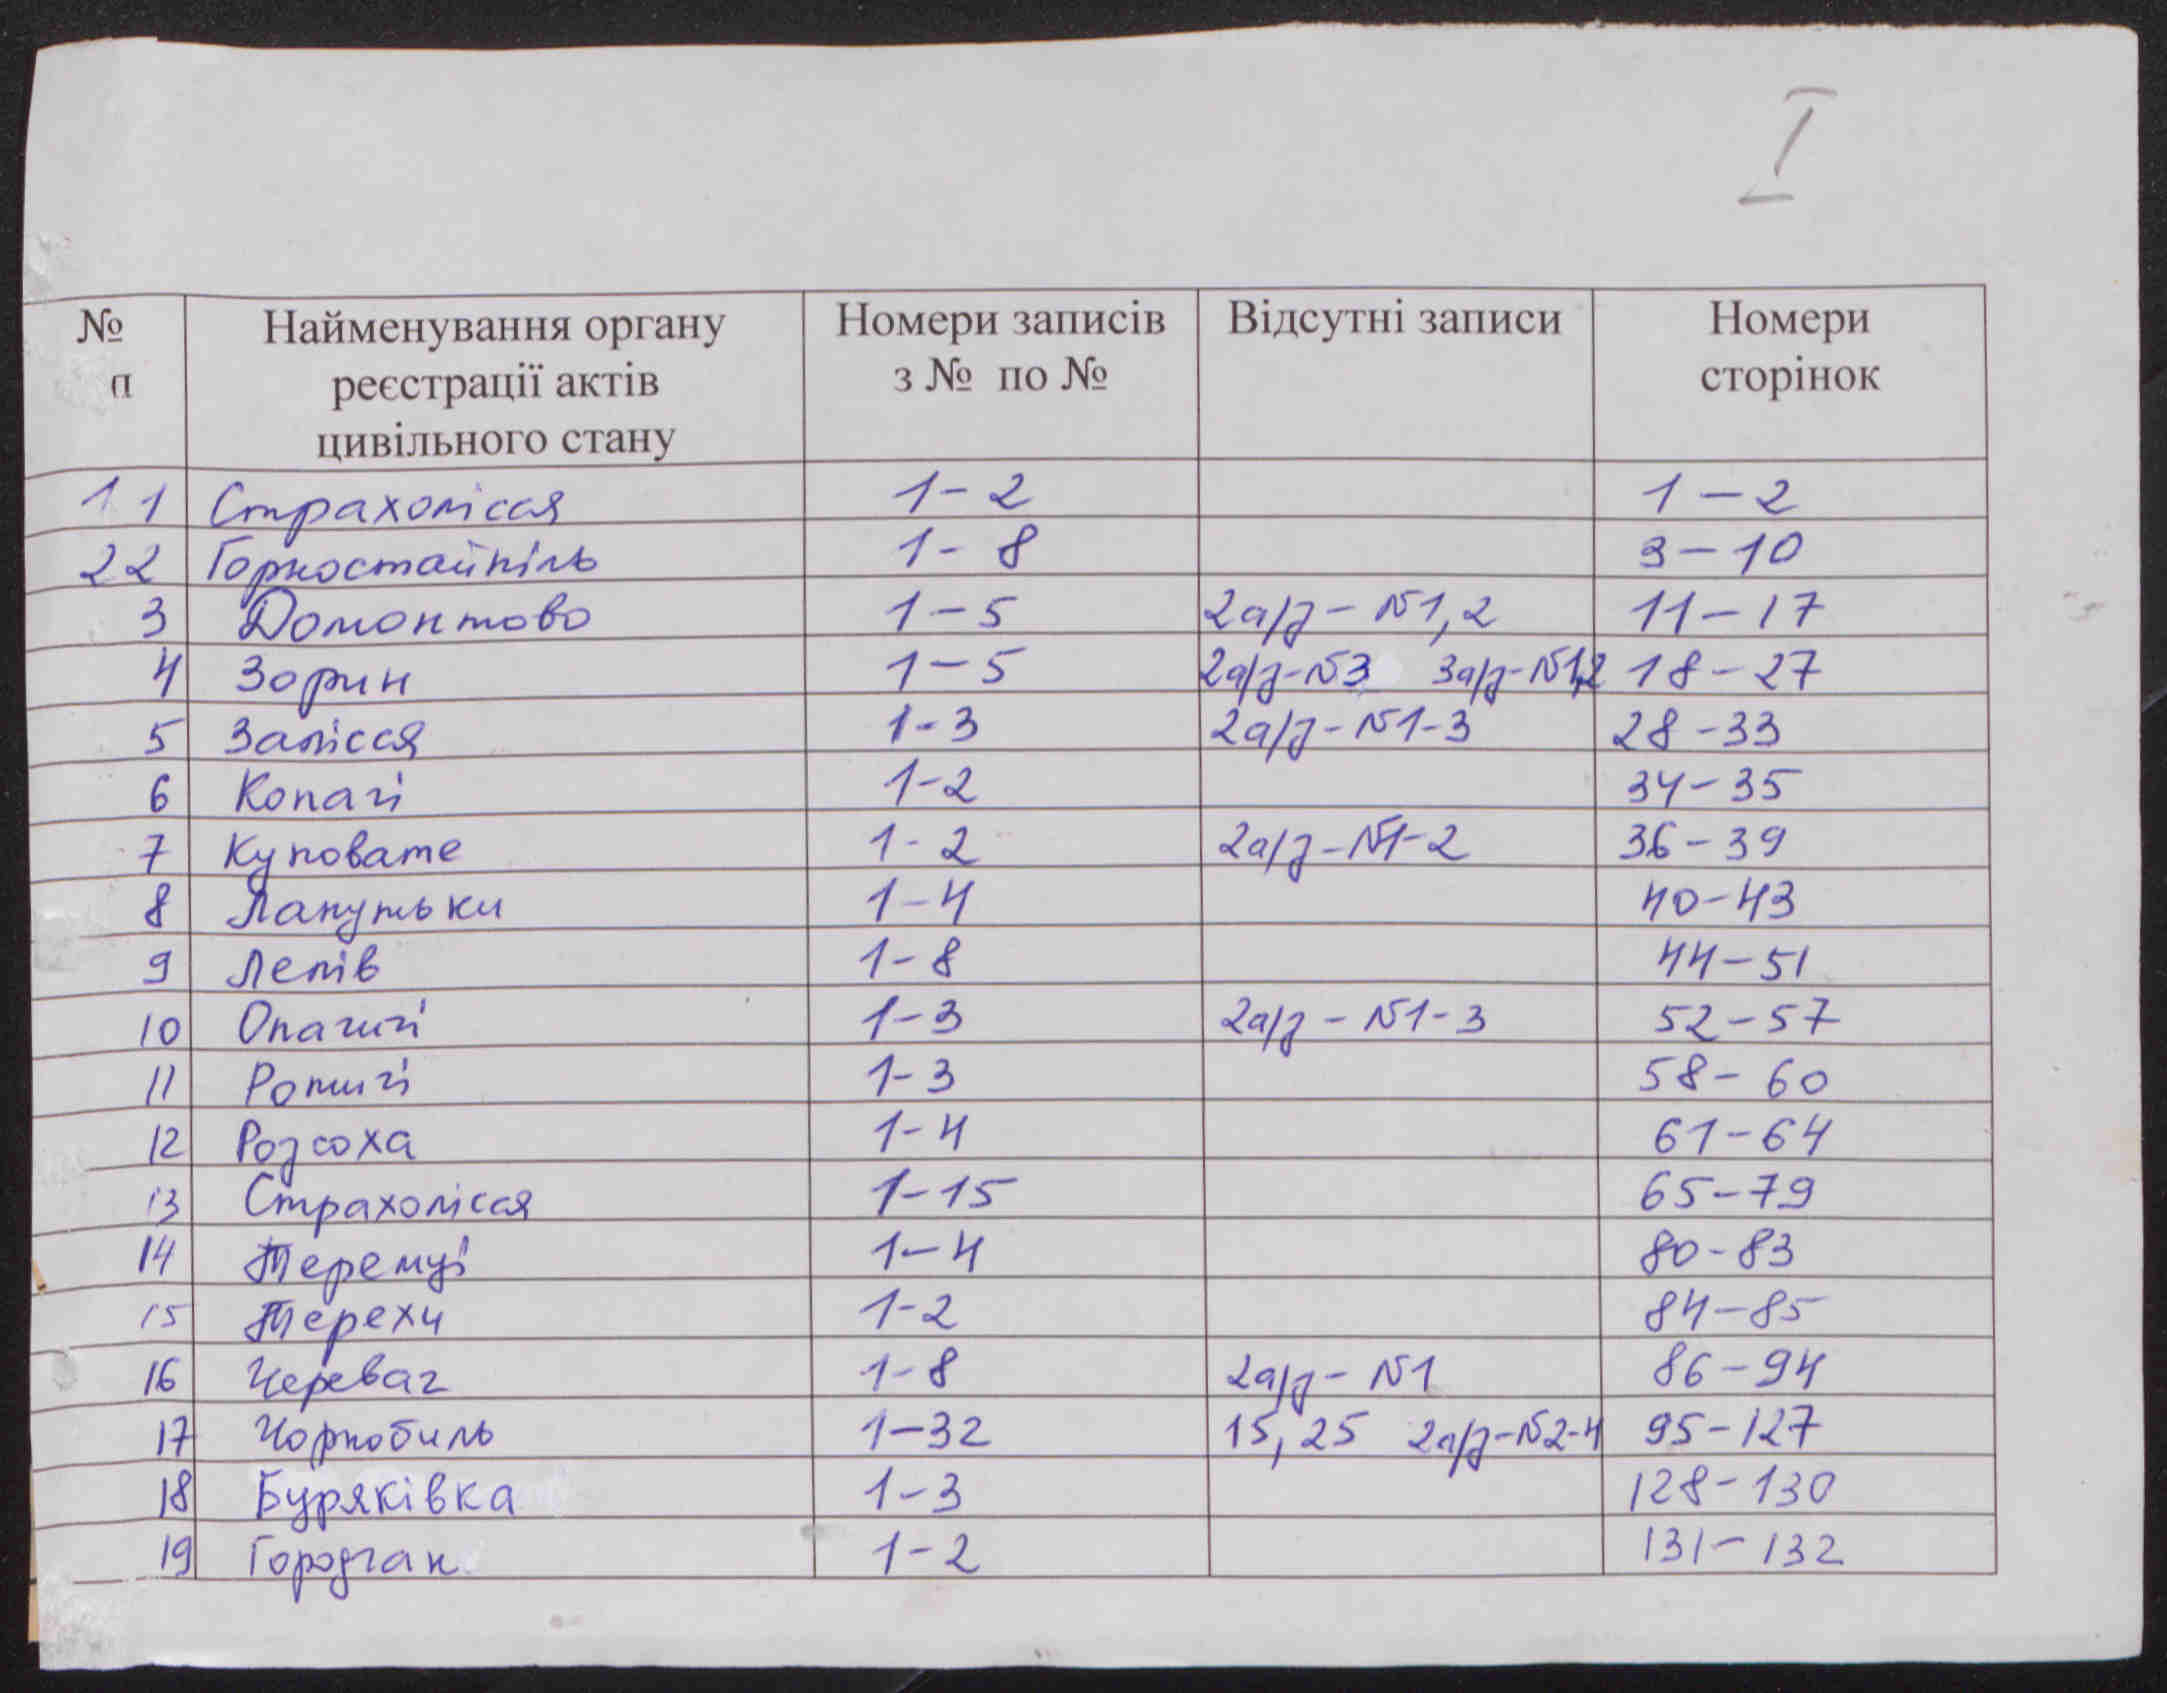 I
№ Найменування органу Номери записів Відсутні записи Номери
п реєстрації актів з № по № сторінок
цивільного стану
1 1 Страхолісся 1-2 1-2
2 2 Горностайпіль 1-8 3-10
3 Домонтово 1-5 2а/з-№1,2 11-17
4 Зорин 1-5 2а/з-№3 3а/з-№1,2 18-27
5 Залісся 1-3 2а/з-№1-3 28-33
6 Копачі 1-2 34-35
7 Куповате 1-2 2а/з-№1-2 36-39
8 Лапутьки 1-4 40-43
9 Лелів 1-8 44-51
10 Опачичі 1-3 2а/з-№1-3 52-57
11 Ропичі 1-3 58-60
12 Розсоха 1-4 61-64
13 Страхолісся 1-15 65-79
14 Теремці 1-4 80-83
15 Терехи 1-2 84-85
16 Черевач 1-8 2а/з-№1 86-94
17 Чорнобиль 1-32 15,25 2а/з-№2-4 95-127
18 Буряківка 1-3 128-130
19 Городчан 1-2 131-132